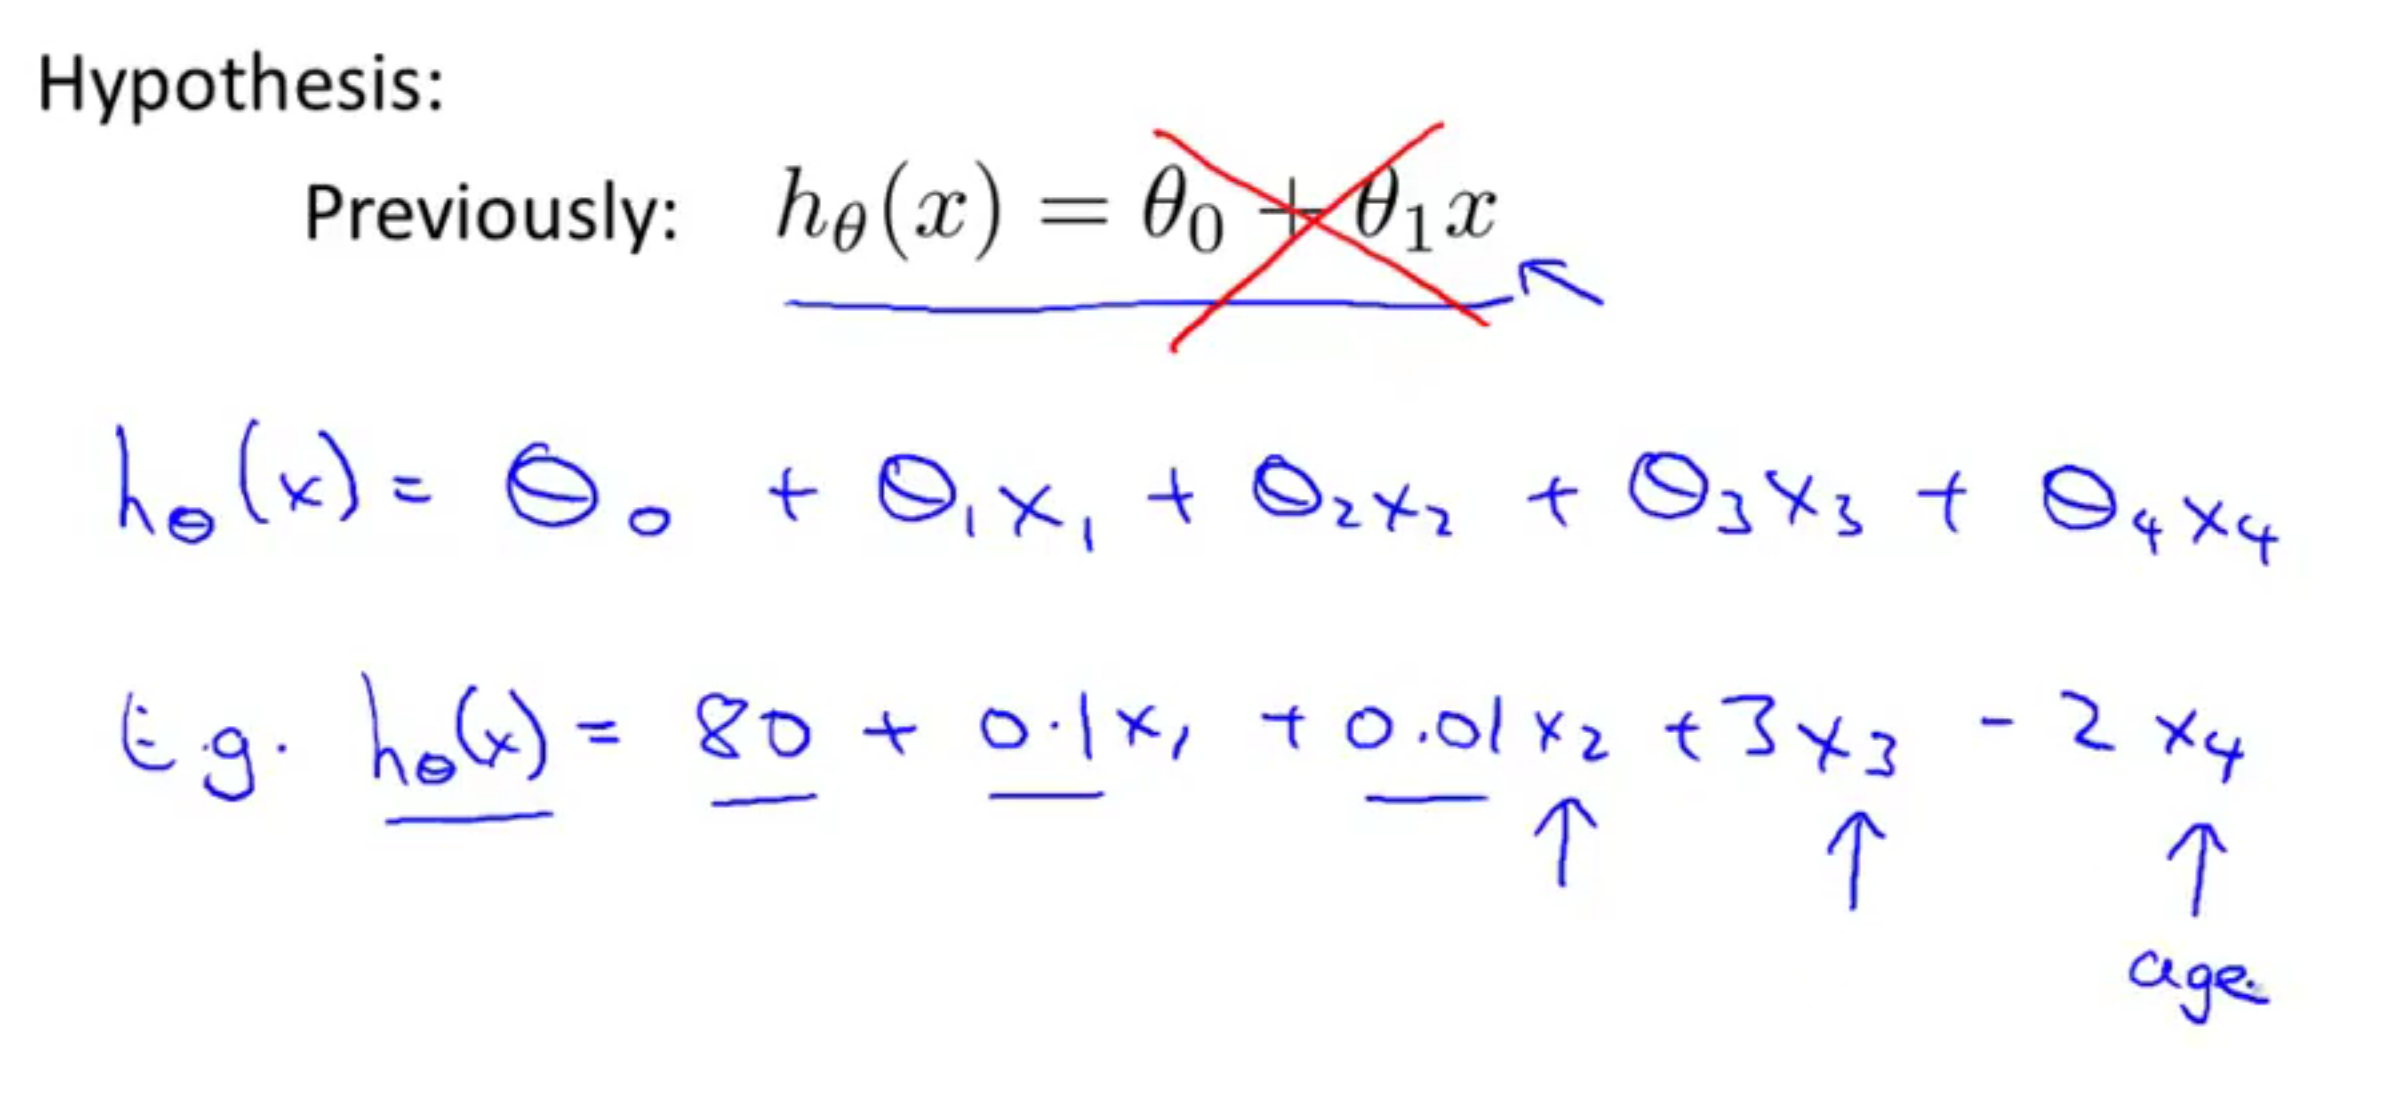 Hypothesis:
Previously: hθ(x) = θ0 + θ1x
hθ(x) = θ0 + θ1x1 + θ2x2 + θ3x3 + θ4x4
E.g. hθ(x) = 80 + 0.1x1 + 0.01x2 + 3x3 - 2x4
age.